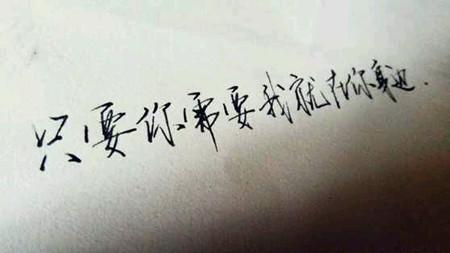 只要你需要我就在你身边.